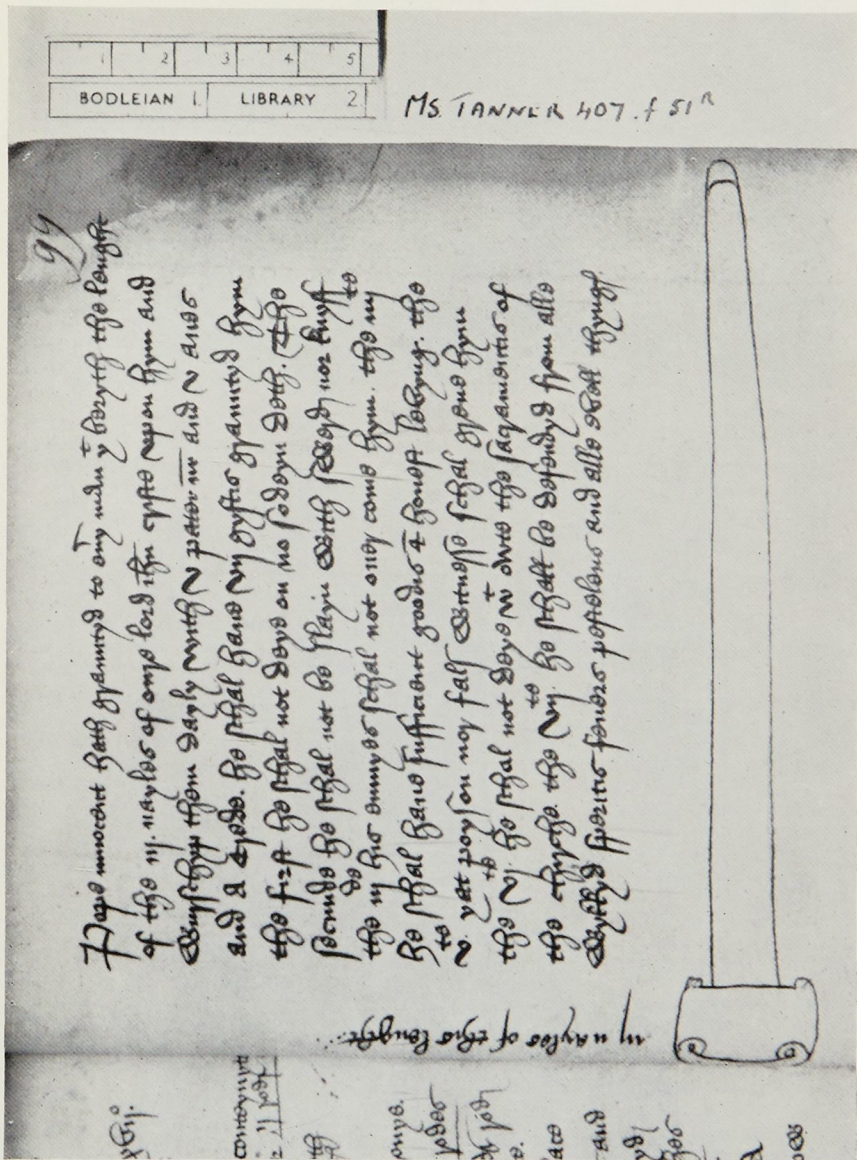 1 2 3 4 5
BODLEIAN 1 LIBRARY 2
MS. TANNER 407. f 51R
99
Pape innocent hath grauntyd to ony man yt beryth the lenght
of the iij nayles of oure lord ihu cryste vpon hym and
Wurschyp them dayly with v pater nr and v aues
and A credo. he schal haue vij gyftis grauntyd hym
the first he schal not deye on no sodeyn deth. The
secunde he schal not be slayn with swerd nor knyff
the iijde his enmyes schal not ouer come hym. the iiijto
he schal haue sufficient goodes & honest levyng. the
vto yat poyson nor fals Witnesse schal greue hym
the vjto he schal not deye wt owte the sacramentis of
the chirche. the vijto he schall be defendyd from alle
Wykkyd speritis feueres pestelens and alle evell thyngs
iij nayles of this lenght
and